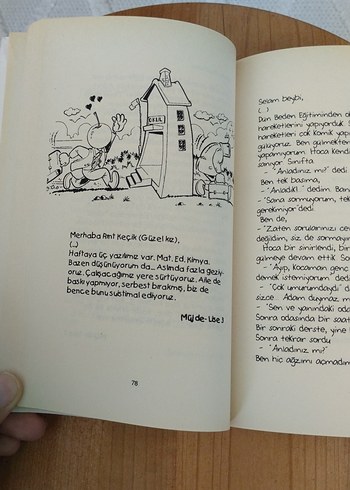 OKUL
Merhaba Ant Keçik (Güzel kız),
(...)
Haftaya üç yazılımız var. Mat. Ed. Kimya.
Bazen düşünüyorum da... Aslında fazla geziy-
oruz. Çalışacağımız yere sürtüyoruz. Aile de
baskı yapmıyor, serbest bırakmış, biz de
bence bunu suistimal ediyoruz.
Müjde - Lise 3
78
Selam beybi,
(...)
Dün Beden Eğitiminden
hareketlerini yapıyorduk.
hareketleri çok komik
gülüyoruz. Ben gülmekten
yapamıyorum. Hoca kendi
sanıyor. Sınıfta
- "Anladınız mı?" dedi
Ben tek başıma,
- "Anladık!" dedim.
- "Sana sormuyorum,
gerekmiyor" dedi.
Ben de,
- "Zaten sorularınızı
değildim, siz de sormayın
Hoca bir sinirlendi, bir
gülmeye devam ettik.
- "Ayıp, kocaman
demek istemiyorum"
- "Çok umurumdaydı"
sizce. Adam duymaz
- "Sen ve yanındaki
Sonra odasında bir
Bir sonraki derste, yine
Sonra tekrar sordu
- "Anladınız mı?"
Ben hiç ağzımı açmadım